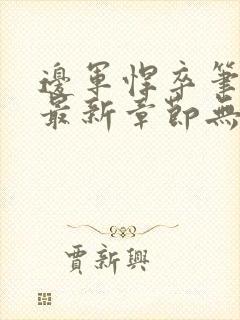 邊軍悍卒筆
最新章節無
賈新興